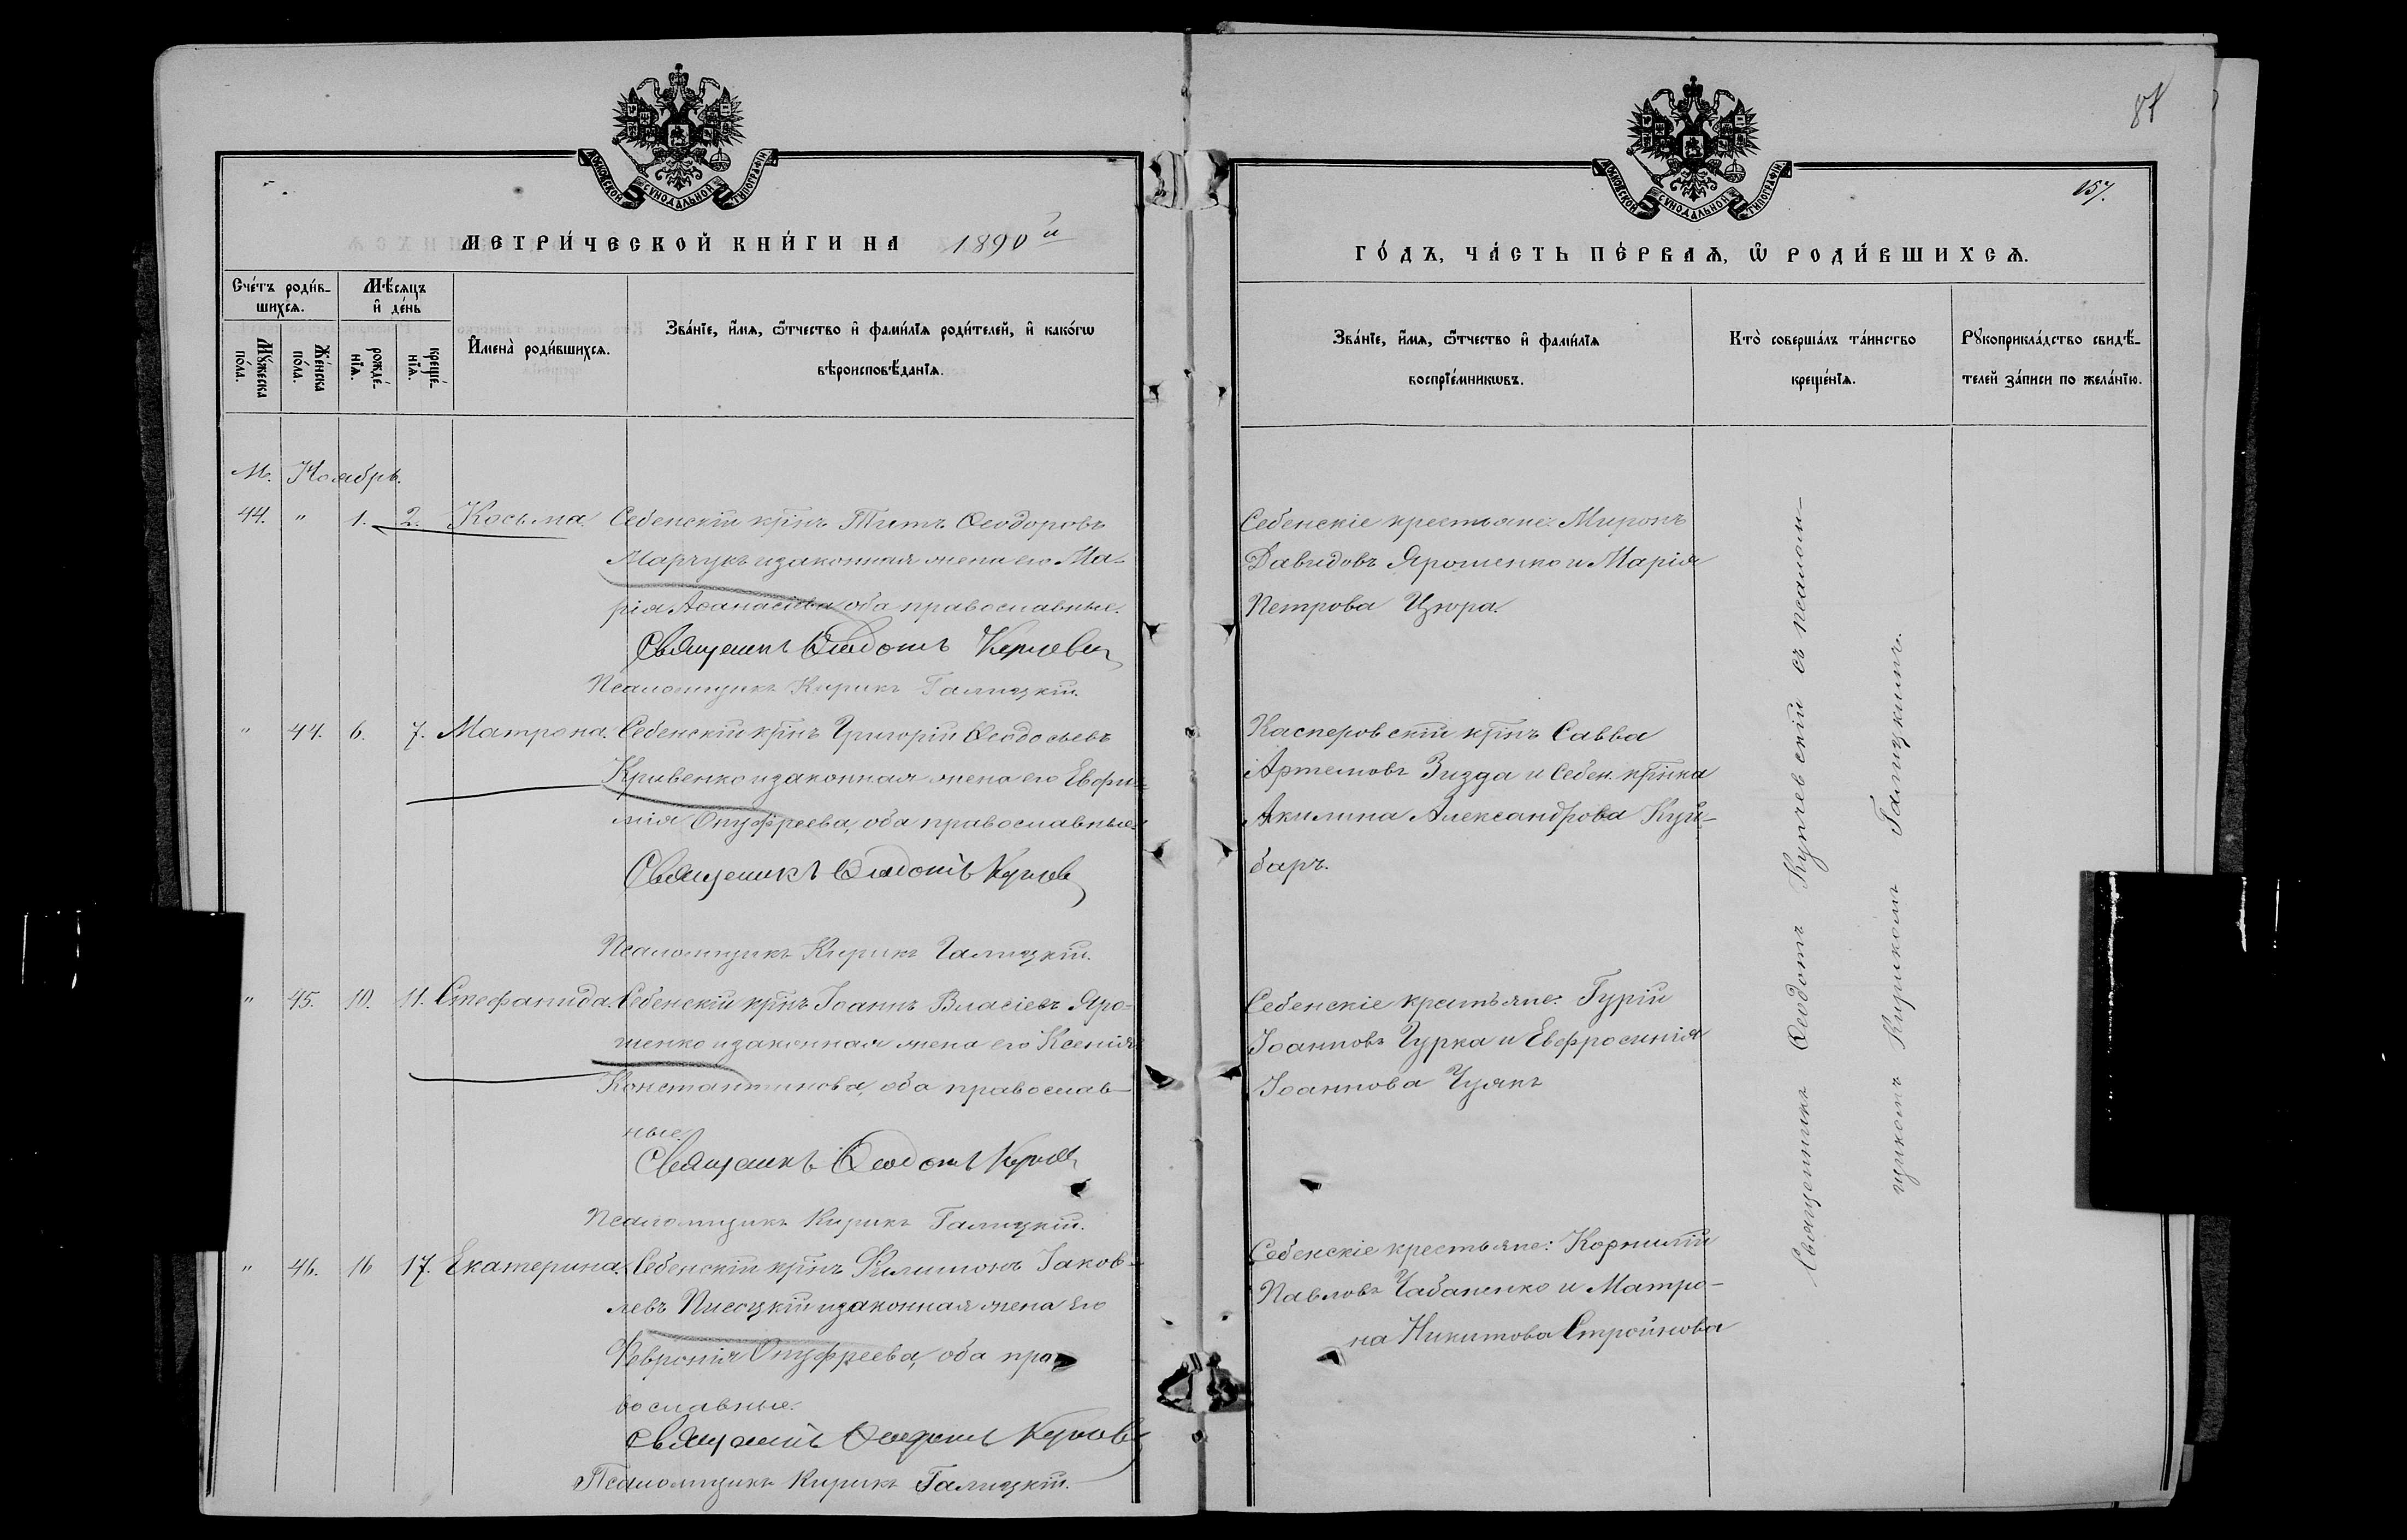 МОСКОВСКОЙ СѴНОДАЛЬНОЙ ТѴПОГРАФІИ
МЕТРИ́ЧЕСКОЙ КНИ́ГИ НА 1890й
Сче́тъ роди́в-
шихсѧ.
Мѣ́сяцъ
и҆ де́нь
Мꙋ́жеска
по́ла.
Же́нска
по́ла.
рожде́-
нїѧ.
креще́-
нїѧ.
И҆мена̀ роди́вшихсѧ.
Зва́нїе, и҆́мѧ, ѻ҆́тчество и҆ фами́лїѧ роди́телей, и҆ како́гѡ
вѣроисповѣ́данїѧ.
М. Ноябрь.
44. " 1. 2. Косьма Себенскій крнъ Титъ Ѳеодоровъ
Марчукъ и законная жена его Ма-
рія Аѳанасіева оба православные.
Священникъ Ѳеодотъ
Псаломщикъ Кирикъ Галицкій.
" 44. 6. 7. Матрона. Себенскій крнъ Григорій Ѳеодосьевъ
Кривенко и законная жена его Евфи-
мія Онуфреева, оба православные.
Священникъ Ѳеодотъ
Псаломщикъ Кирикъ Галицкій.
" 45. 10. 11. Стефанида. Себенскій крнъ Іоаннъ Власіевъ Яро-
шенко и законная жена его Ксенія
Константинова, оба православ-
ные.
Священникъ Ѳеодотъ
Псаломщикъ Кирикъ Галицкій.
" 46. 16 17. Екатерина. Себенскій крнъ Филимонъ Іаков-
левъ Писоцкій и законная жена его
Февронія Онуфреева, оба пра-
вославные.
Священникъ Ѳеодотъ
Псаломщикъ Кирикъ Галицкій.
МОСКОВСКОЙ СѴНОДАЛЬНОЙ ТѴПОГРАФІИ
157.
ГО́ДЪ, ЧА́СТЬ ПЕ́РВАѦ, Ѡ҆ РОДИ́ВШИХСѦ.
Зва́нїе, и҆́мѧ, ѻ҆́тчество и҆ фами́лїѧ
воспрїе́мникѡвъ.
Кто̀ соверша́лъ та́инство
креще́нїѧ.
Рꙋкоприкла́дство свидѣ́-
телей за́писи по жела́нїю.
Себенскіе крестьяне: Миронъ
Давидовъ Ярошенко и Марія
Петрова Цюра.
Касперовскій крнъ Савва
Артемовъ Зизда и Себен. крнка
Акилина Александрова Куй-
баръ.
Себенскіе крестьяне: Гурій
Іоанновъ Чурка и Евфросинія
Іоаннова Чуякъ
Себенскіе крестьяне: Корнилій
Павловъ Чабаненко и Матро-
на Никитова Стройнова
Священникъ Ѳеодотъ Купчевскій съ псалом-
щикомъ Кирикомъ Галицкимъ.